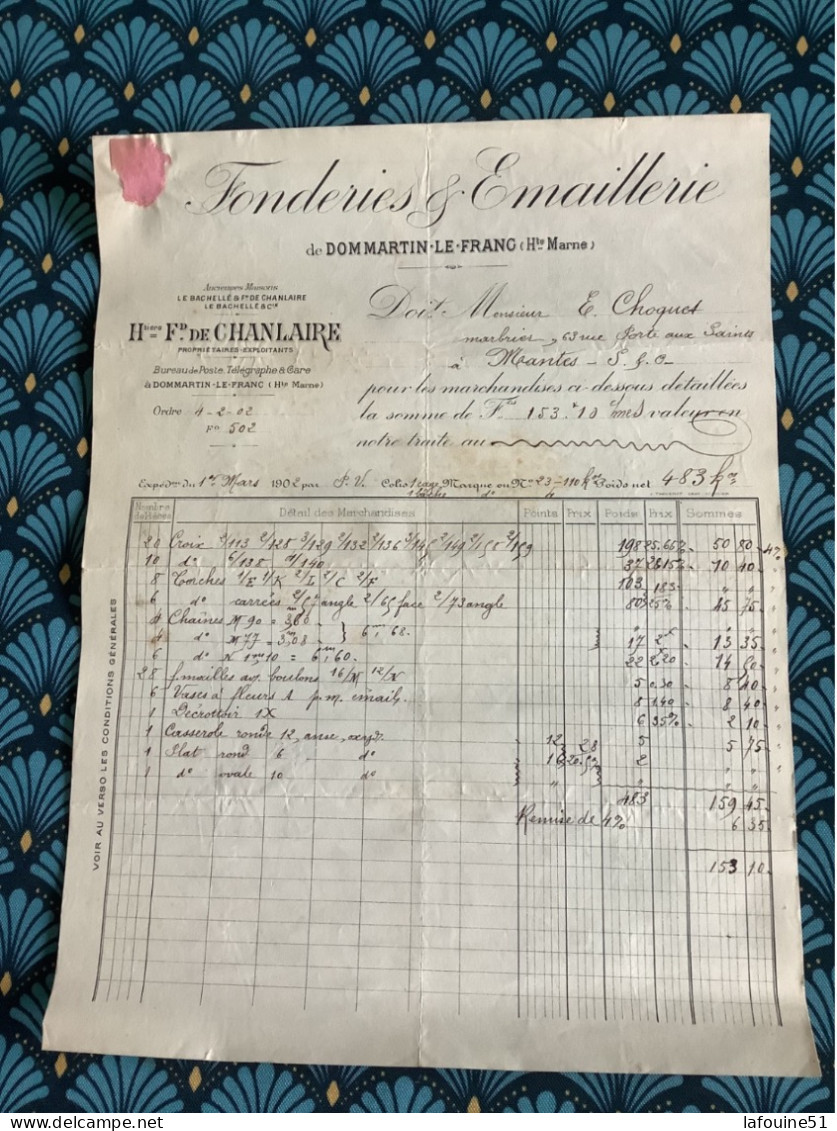 Fonderies & Emaillerie
de DOMMARTIN-LE-FRANC (Hte Marne)
ANCIENNES MAISONS
LE BACHELLÉ & Fd DE CHANLAIRE
LE BACHELLÉ & Cie
Htiers Fd DE CHANLAIRE
PROPRIÉTAIRES-EXPLOITANTS
Bureau de Poste, Télégraphe & Gare
à DOMMARTIN-LE-FRANC (Hte Marne)
Ordre 4-2-02
Fo 502
Doit Monsieur E. Choquet
marbrier, 63 rue Porte aux Saints
à Mantes - S. & O -
pour les marchandises ci-dessous détaillées
la somme de Fcs 153.10 cmes valeur en
notre traite au
Expédon du 1er Mars 1902 par P.V. Colis Marque ou Nos 23 - 110 k Poids net 483 k
Nombre de Pièces Détail des Marchandises Points Prix Poids Prix Sommes
20 Croix 2/113 2/125 3/129 2/132 3/136 2/149 2/159 198 25.65% 50 80 4%
10 do 6/135 4/140 37 10 40
8 Torches 1/E 1/K 2/L 2/C 2/F 103 183
6 do carrées angle 2/69 face 2/73 angle 80 25% 45 75
4 Chaînes N 90 = 3,60
4 do N 77 = 3,08 } 6m,68 17 2 13 35
6 do N 1m10 = 6m,60 22 2.20 14
28 f. mailles av. boulons 16/M 12/N 5 0.30 8 40
6 Vases à fleurs 1 p.m. émail. 8 1.40 8 40
1 Décrottoir 1X 6 35% 2 10
1 Casserole ronde 12, anse, 12 28 5 5 75
1 Plat rond 6 do 16 2
1 do ovale 10 do " "
483 159 45
Remise de 4% 6 35
153 10
VOIR AU VERSO LES CONDITIONS GÉNÉRALES
lafouine51